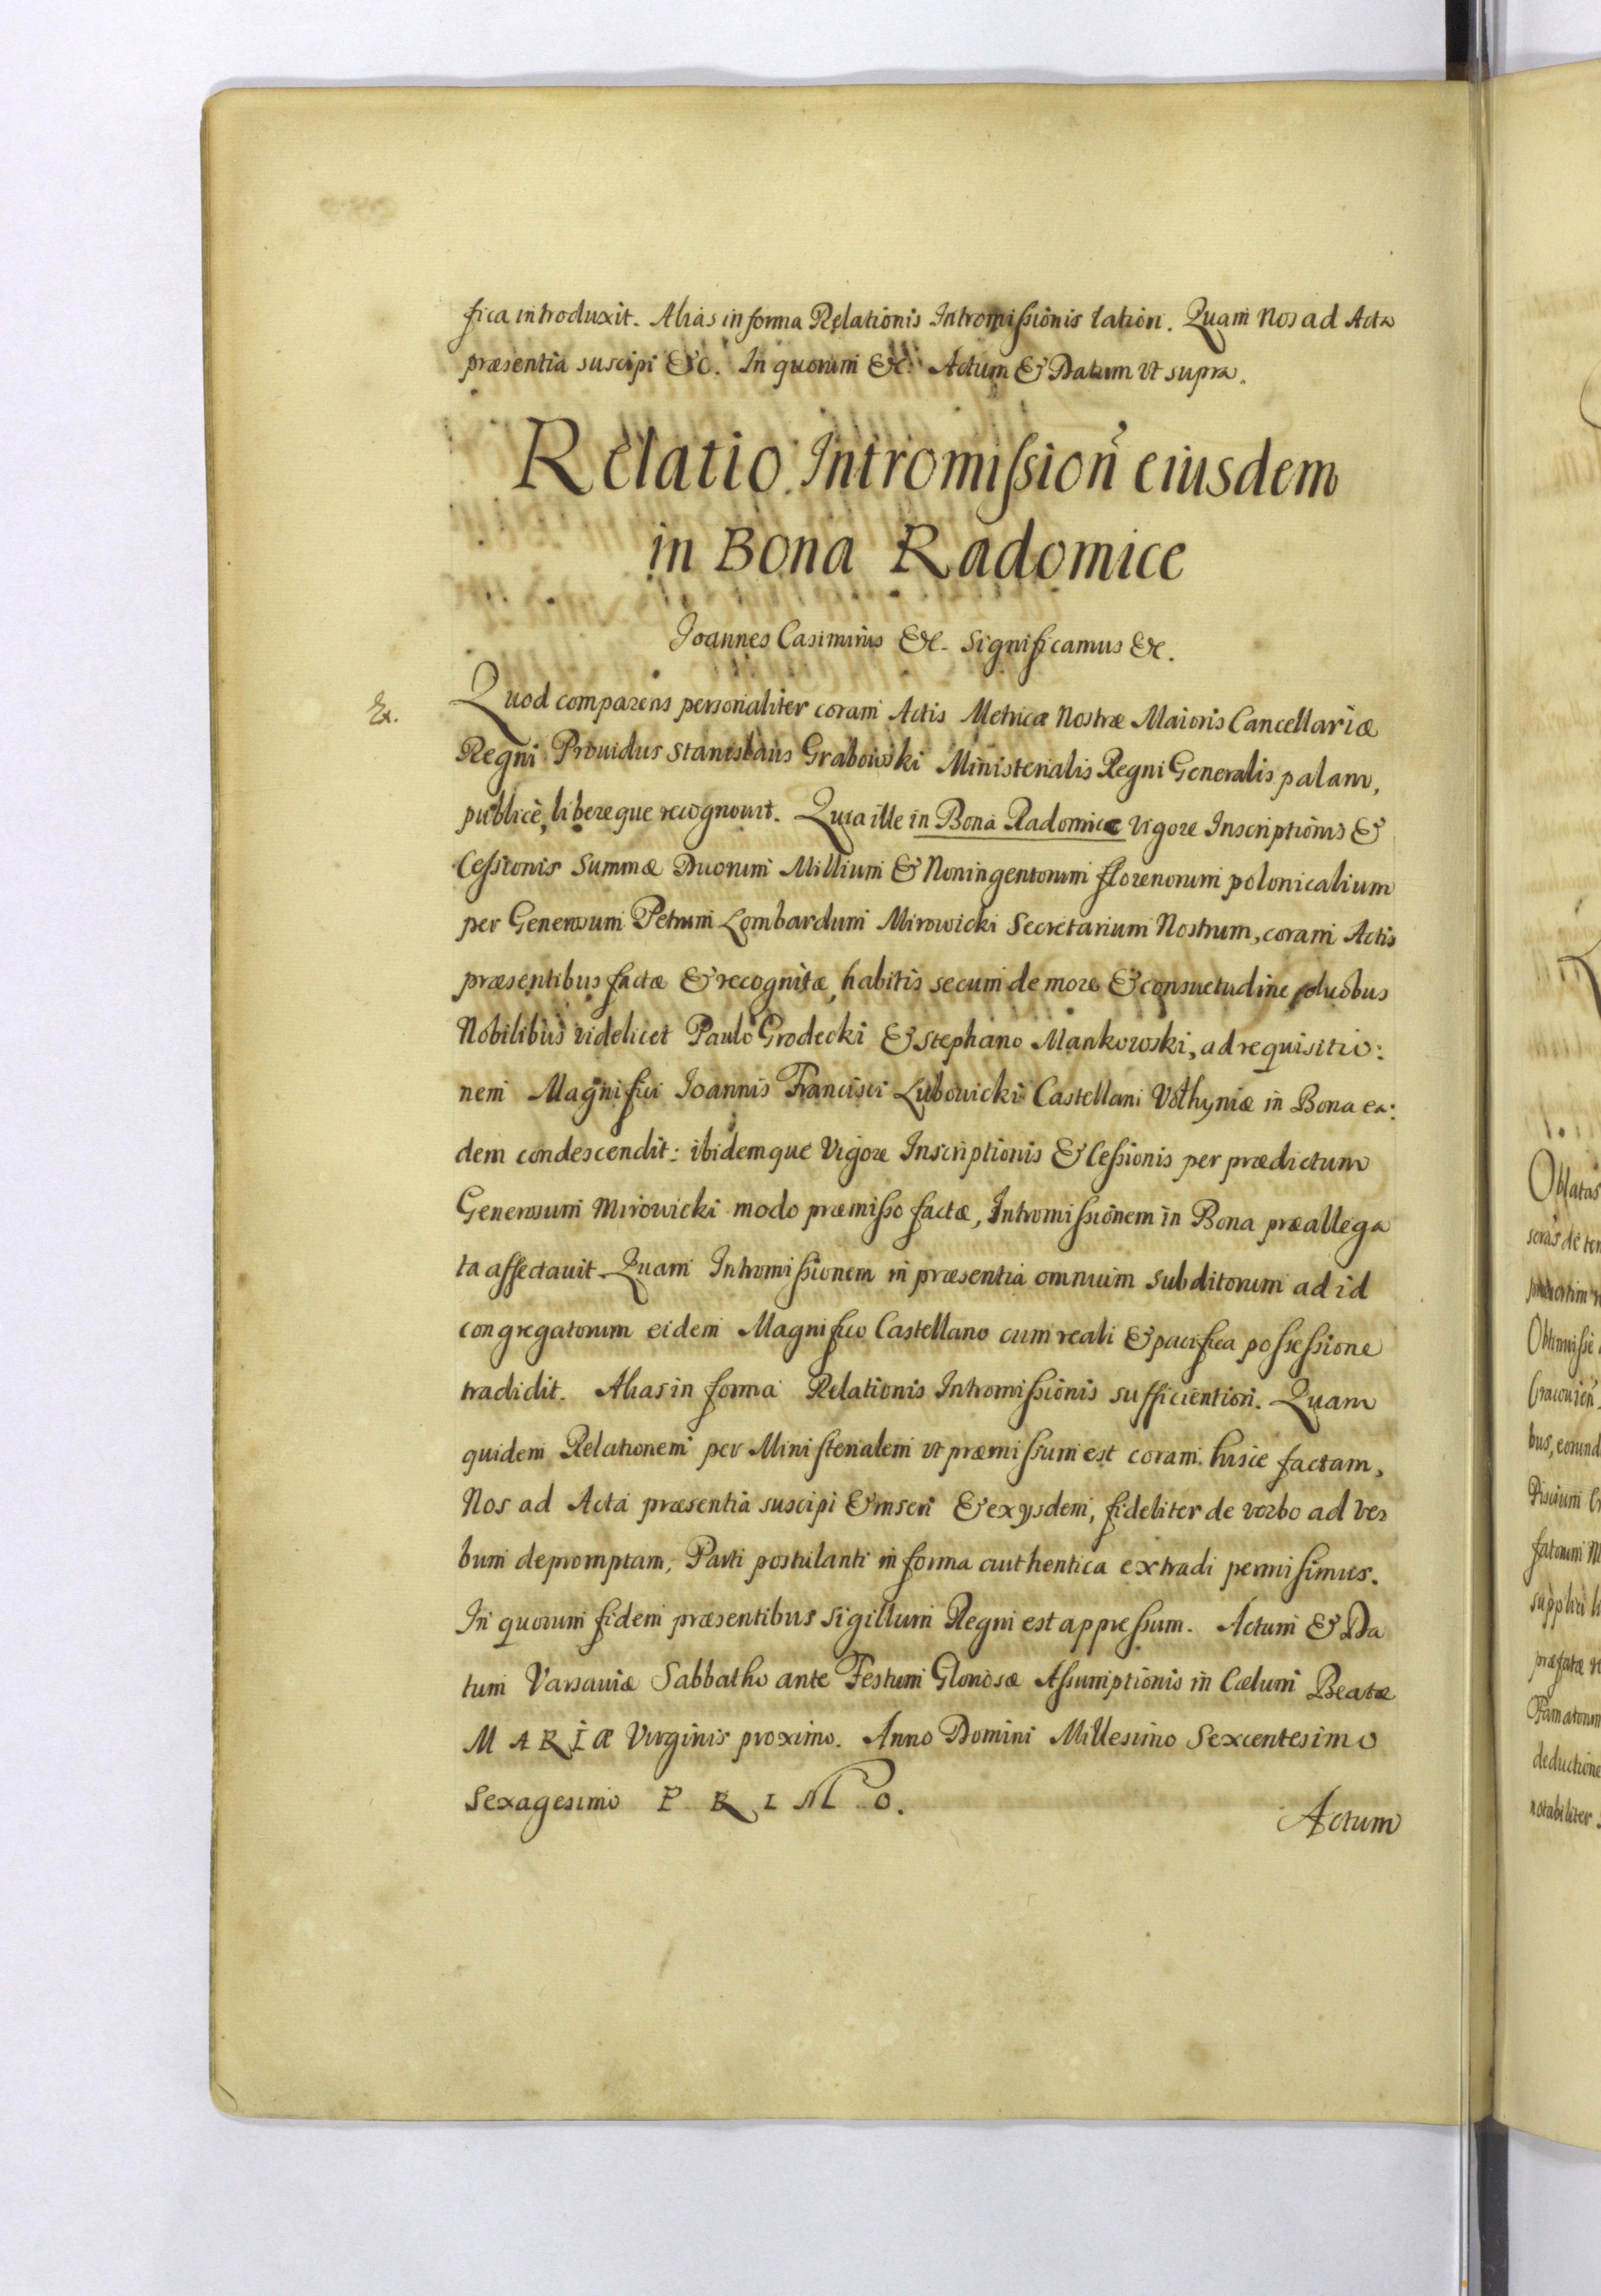 fica introduxit. Alias in forma Relationis Intromissionis lation. Quam Nos ad Acta
præsentia suscipi &c. In quorum &c. Actum & Datum vt supra.
Relatio Intromission eiusdem
in Bona Radomice
Ioannes Casimirus &c. Significamus &c.
Ex.
Quod comparens personaliter coram Actis Metricæ Nostræ Maioris Cancellariæ
Regni Prouidus Stanislaus Grabowski Ministerialis Regni Generalis palam,
publicè, libereque recognouit. Quia ille in Bona Radomice vigore Inscriptionis &
Cessionis Summæ Duorum Millium & Noningentorum florenorum polonicalium
per Generosum Petrum Lombardum Mirowicki Secretarium Nostrum, coram Actis
præsentibus factæ & recognitæ, habitis secum de more & consuetudine duobus
Nobilibus videlicet Paulo Grodecki & Stephano Mankowski, ad requisitio:
nem Magnifici Ioannis Francisci Lubowicki Castellani Vołhyniæ in Bona ea:
dem condescendit: ibidemque Vigore Inscriptionis & Cessionis per prædictum
Generosum Mirowicki modo præmisso factæ, Intromissionem in Bona præallega
ta affectauit. Quam Intromissionem in præsentia omnium subditorum ad id
congregatorum eidem Magnifico Castellano cum reali & pacifica possessione
tradidit. Alias in forma Relationis Intromissionis sufficientiori. Quam
quidem Relationem per Ministerialem vt præmissum est coram hisce factam,
Nos ad Acta præsentia suscipi & inseri & ex ysdem, fideliter de verbo ad ver
bum depromptam, Parti postulanti in forma authentica extradi permisimus.
In quorum fidem præsentibus Sigillum Regni est appressum. Actum & Da
tum Varsauiæ Sabbatho ante Festum Gloriosæ Assumptionis in Cælum Beatæ
MARIÆ Virginis proximo. Anno Domini Millesimo Sexcentesimo
Sexagesimo PRIMO.
Actum
Oblatas
bus, eorund
deductione
notabiliter